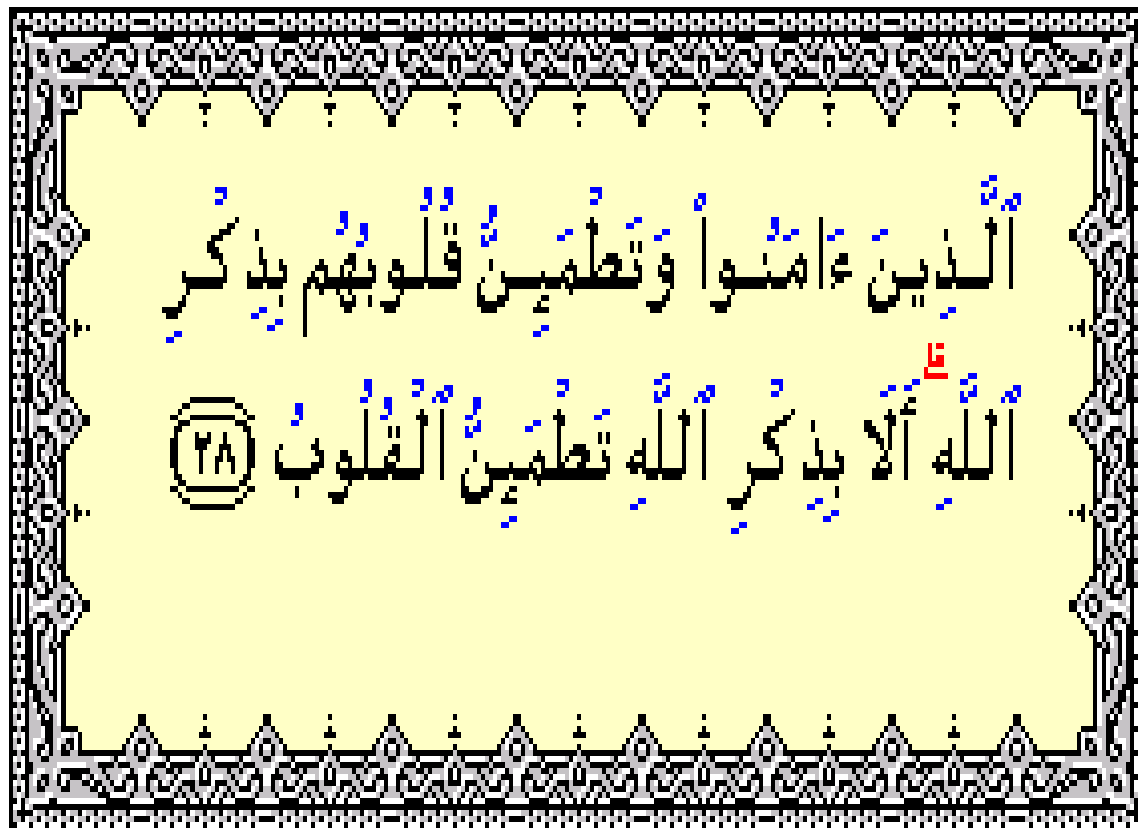 ٱلَّذِينَ ءَامَنُوا۟ وَتَطْمَئِنُّ قُلُوبُهُم بِذِكْرِ
ٱللَّهِ ۗ أَلَا بِذِكْرِ ٱللَّهِ تَطْمَئِنُّ ٱلْقُلُوبُ ٢٨